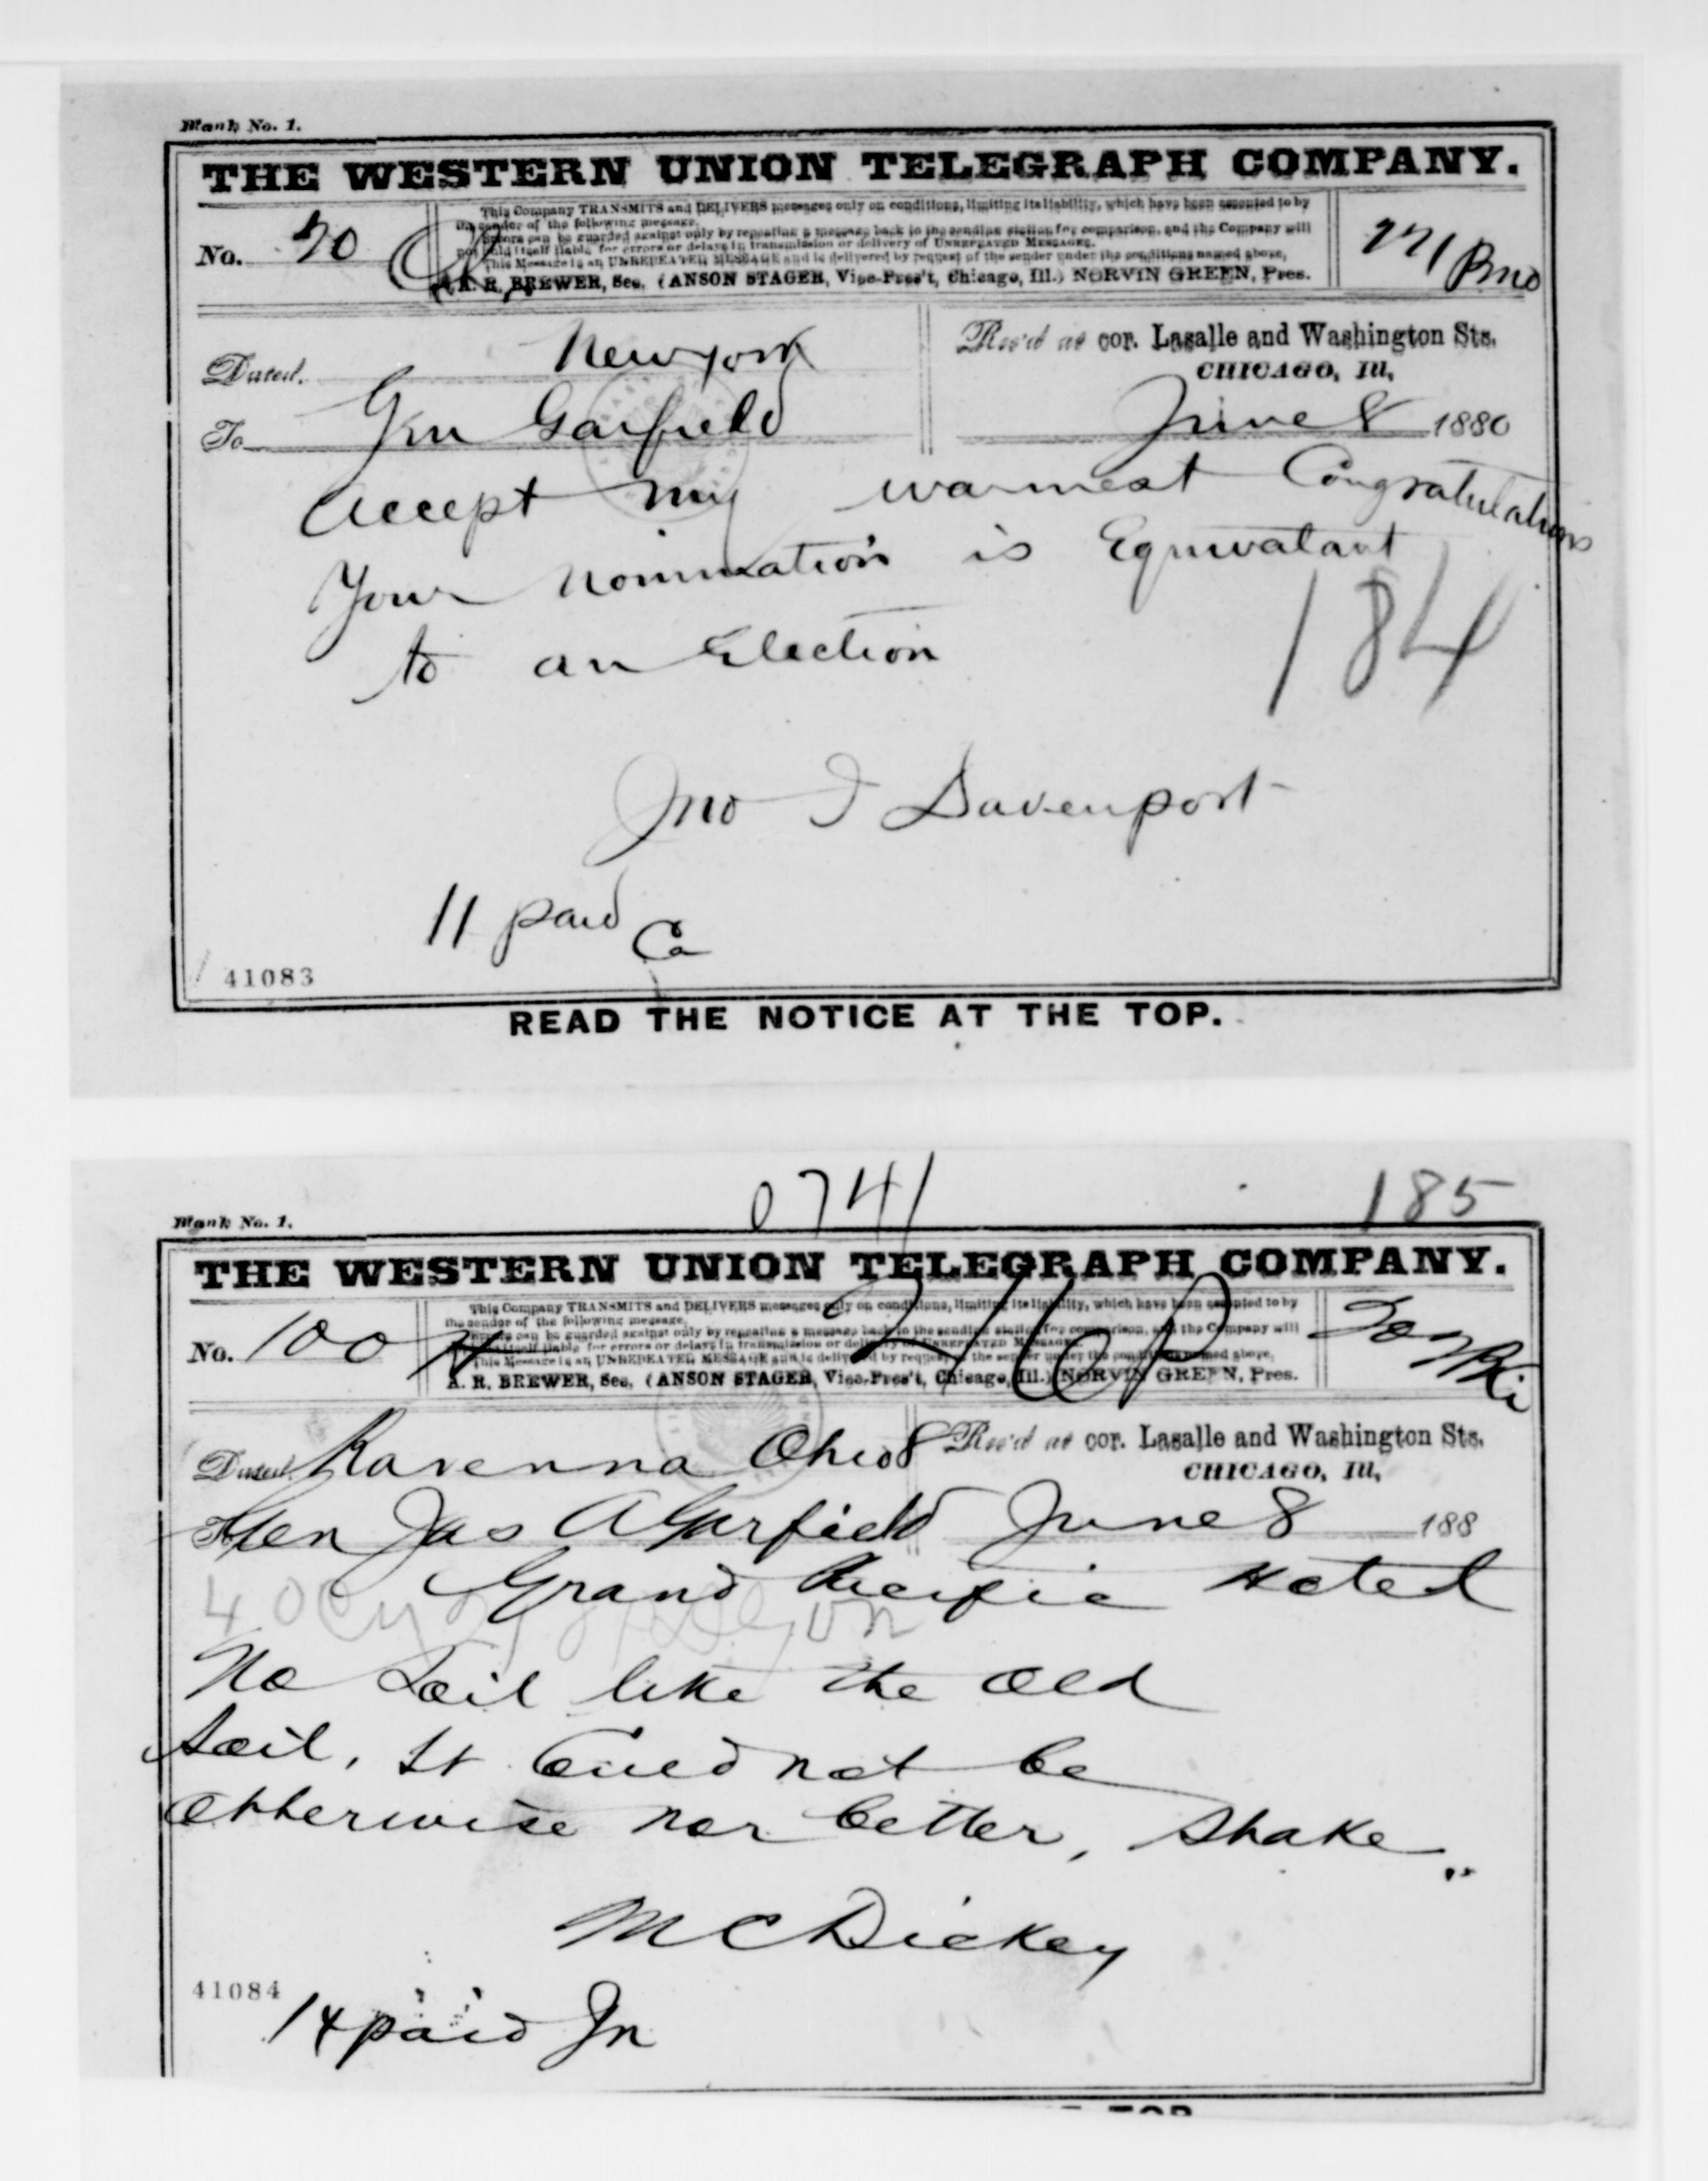 Blank No. 1.
THE WESTERN UNION TELEGRAPH COMPANY.
This Company TRANSMITS and DELIVERS messages only on conditions, limiting its liability, which have been assented to by
the sender of the following message.
Errors can be guarded against only by repeating a message back to the sending station for comparison, and the Company will
not hold itself liable for errors or delays in transmission or delivery of UNREPEATED MESSAGES.
This Message is an UNREPEATED MESSAGE and is delivered by request of the sender under the conditions named above.
A. R. BREWER, Sec. (ANSON STAGER, Vice-Pres't, Chicago, Ill.) NORVIN GREEN, Pres.
No. 70
Dated. New york
Rec'd at cor. Lasalle and Washington Sts.
CHICAGO, Ill,
June 8 1880
To Gen Garfield
Accept my warmest Congratulations
Your nomination is Equivalant
184
to an Election
Jno I Davenport
11 paid Ca
41083
READ THE NOTICE AT THE TOP.
0741
185
Blank No. 1.
THE WESTERN UNION TELEGRAPH COMPANY.
This Company TRANSMITS and DELIVERS messages only on conditions, limiting its liability, which have been assented to by
the sender of the following message.
Errors can be guarded against only by repeating a message back to the sending station for comparison, and the Company will
not hold itself liable for errors or delays in transmission or delivery of UNREPEATED MESSAGES.
This Message is an UNREPEATED MESSAGE and is delivered by request of the sender under the conditions named above.
A. R. BREWER, Sec. (ANSON STAGER, Vice-Pres't, Chicago, Ill.) NORVIN GREEN, Pres.
No. 100
216P
Dated Ravenna Ohio 8
Rec'd at cor. Lasalle and Washington Sts.
CHICAGO, Ill,
To Gen Jas A Garfield June 8 188
Grand Pacific Hotel
No Soil like the old
Soil, It Could not be
Otherwise nor better, Shake
M C Dickey
41084
14 paid Jn